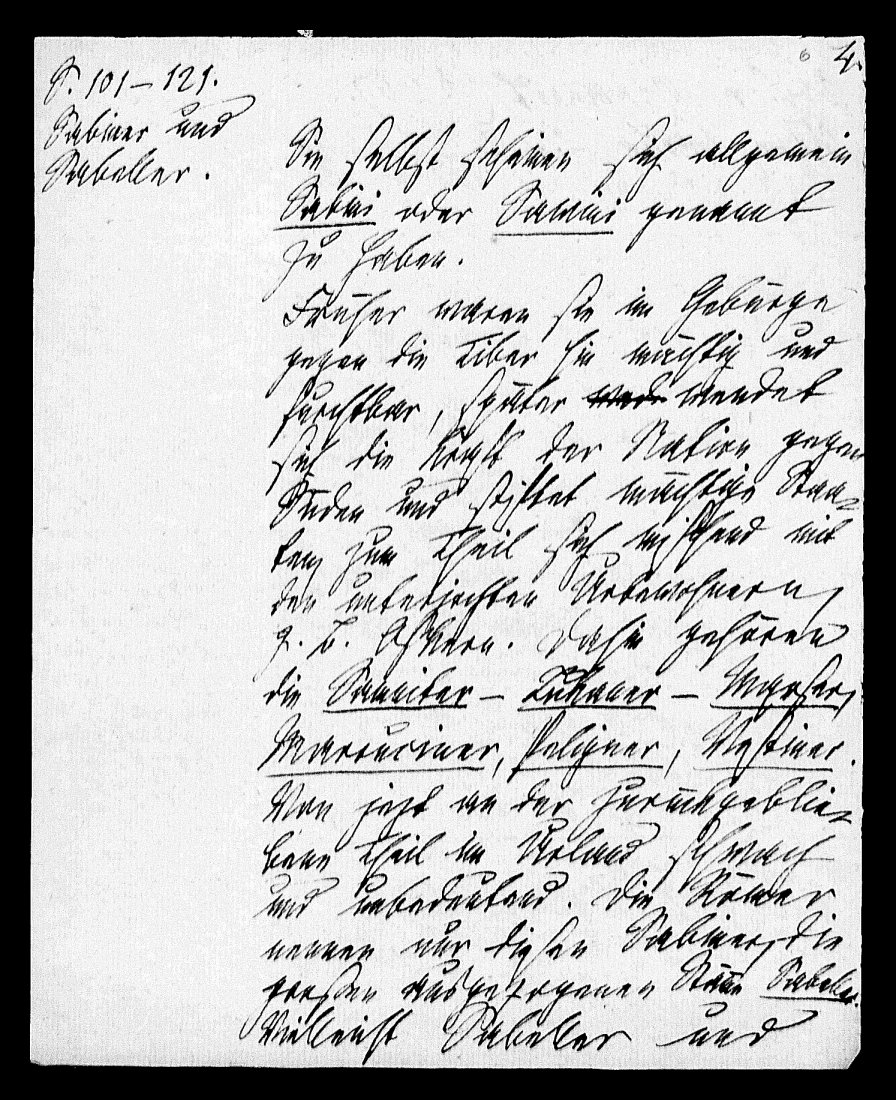 6 4.
S. 101–121.
Sabiner und
Sabeller.
Sie selbst scheinen sich allgemein
Sabini oder Savini genannt
zu haben.
Früher waren sie im Gebürge
gegen die Tiber hin mächtig und
furchtbar, später wendet
sich die Kraft der Nation gegen
Süden und stiftet mächtige Staa-
ten zum Theil sich mischend mit
den unterjochten Urbewohnern,
z. B. Oskern. Dahin gehören
die Samniter – Lukaner – Marser,
Marruciner, Peligner, Vestiner.
Von jezt an der zurückgeblie-
bene Theil im Urland schwach
und unbedeutend. Die Römer
nennen nur diesen Sabiner, die
großen ausgezogenen Stäme Sabeller.
Vielleicht Sabeller und